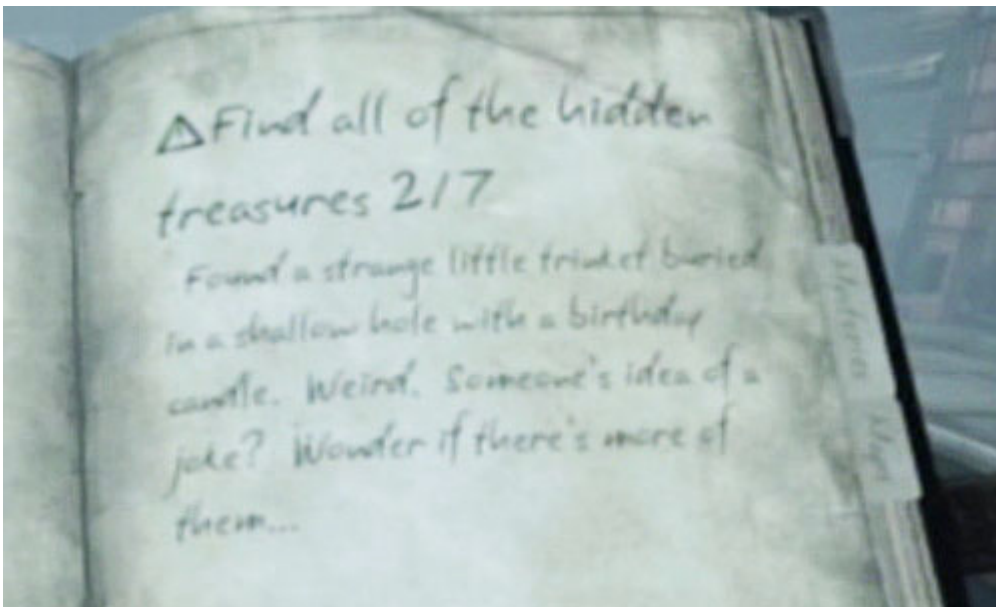 Find all of the hidden
treasures 2/7
Found a strange little trinket buried
in a shallow hole with a birthday
candle. Weird. Someone's idea of a
joke? Wonder if there's more of
them...